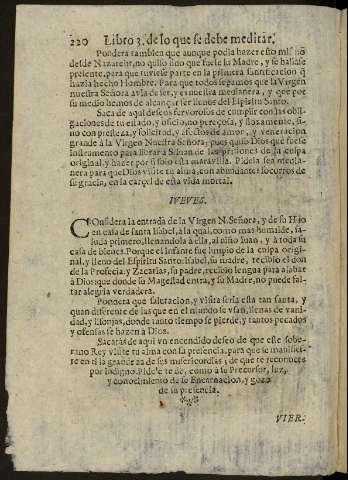 220 Libro 3. de lo que se debe meditar.
Pondera tambien que aunque podia hazer esto
desde Nazareth, no quiso sino que fuese su Madre, y se hallase
presente, para que tuviese parte en la primera santificacion q̃
hazia hecho Hombre. Para que todos sepamos que la Virgen
nuestra Señora avia de ser, y es nuestra medianera, y que por
su medio hemos de alcançar ser llenos del Espiritu Santo.
Saca de aqui deseos fervorosos de cumplir con las obli-
gaciones de tu estado, y oficio, no pereçosa, y flojamente, si-
no con presteza, y solicitud, y afectos de amor, y veneracion
grande à la Virgen Nuestra Señora; pues quiso Dios que fuese
instrumento para librar à S. Iuan de las prisiones de la culpa
original, y hazer por si solo esta maravilla. Pidela sea media-
nera para que Dios visite tu alma, con abundantes socorros de
su gracia, en la carçel de esta vida mortal.
IVEVES.
COnsidera la entrada de la Virgen N. Señora, y de su Hijo
en casa de santa Isabel, à la qual, como mas humilde, sa-
luda primero, llenandola à ella, al niño Iuan, y à toda su
casa de bienes. Porque el infante fue limpio de la culpa origi-
nal, y lleno del Espiritu Santo: Isabel, su madre, recibio el don
de la Profecia: y Zacarias, su padre, recibio lengua para alabar
à Dios: que donde su Magestad entra, y su Madre, no puede fal-
tar alegria verdadera.
Pondera que salutacion, y visita seria esta tan santa, y
quan diferente de las que en el mundo se vsan, llenas de vani-
dad, y lisonjas, donde tanto tiempo se pierde, y tantos pecados
y ofensas se hazen à Dios.
Sacaràs de aqui vn encendido deseo de que este sobe-
rano Rey visite tu alma con su presencia, para que se manifies-
te en ti la grandeza de sus misericordias, de que te reconoces
por indigno. Pidele te dè, como à su Precursor, luz,
y conocimiento de su Encarnacion, y gozo
de su presencia.
VIER.